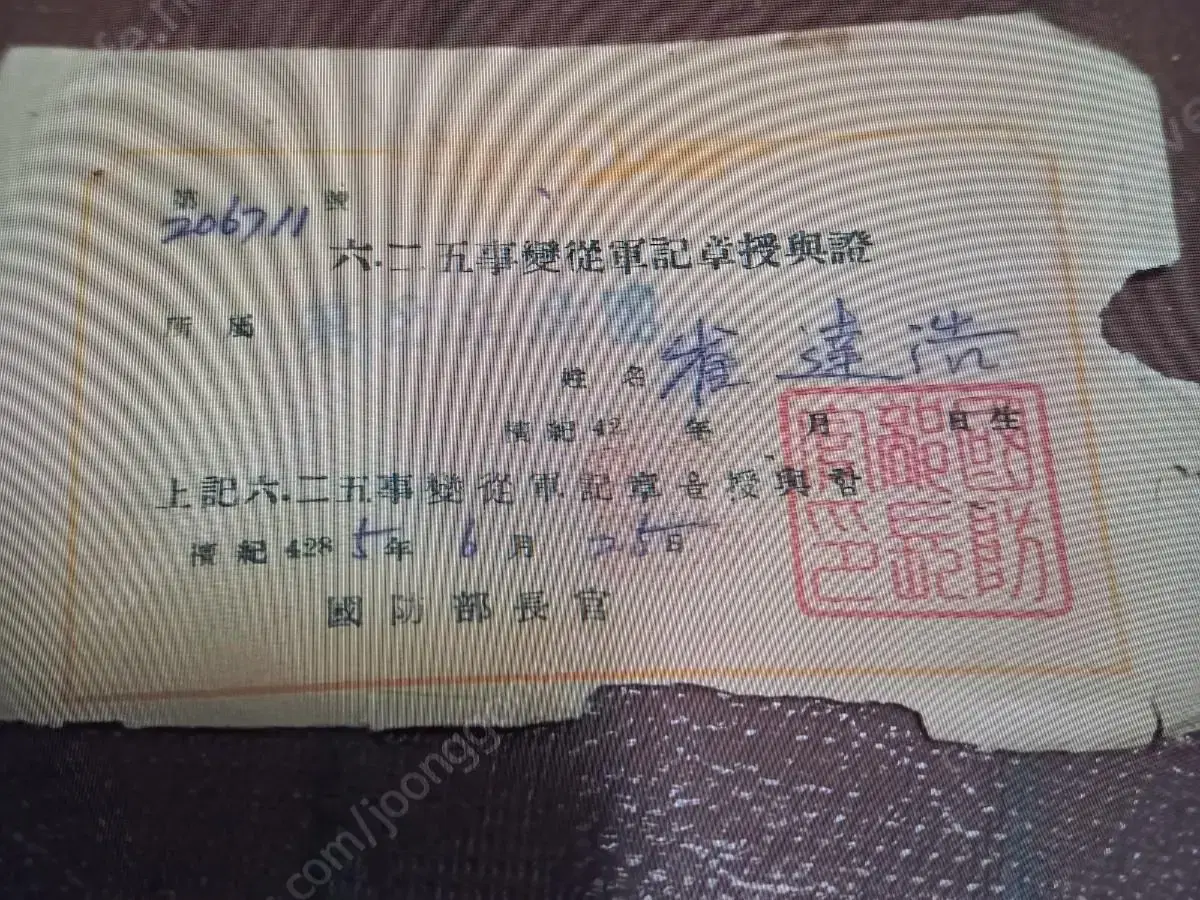 第 206711 號
六·二五事變從軍記章授與證
所屬
姓名 崔達浩
檀紀42 年 月 日生
上記六.二五事變從軍記章을授與함
檀紀4285年6月25日
國防部長官
國防部長官印
com/joongg